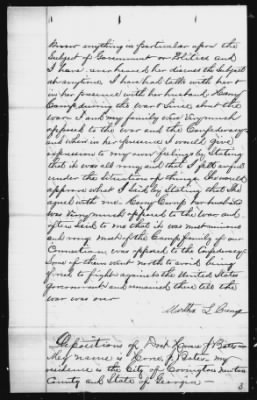 Know anything in particular upon the
Subject of Government or Politics and
I have never heard her discuss the Subject
at anytime. I have had talks with her or
in her presence with her husband Camp
during the war & since about the
war. I and my family was very much
opposed to the war and the Confederacy
and when in her presence I would give
expression to my own feelings by stating
that it was all wrong and that I felt
under the situation of things. She would
approve what I said by stating that she
agreed with me. Camp her husband
was very much opposed to the war and
often said to me that it was
and wrong. most of the Camp family of our
Connection was opposed to the Confederacy.
Some of them went north to avoid being
forced to fight against the United States
Government and remained there till the
war was over
Martha L Camp
Depositions of Doct J Bates
My name is J Bates my
residence is the City of Covington Newton
County and State of Georgia
3